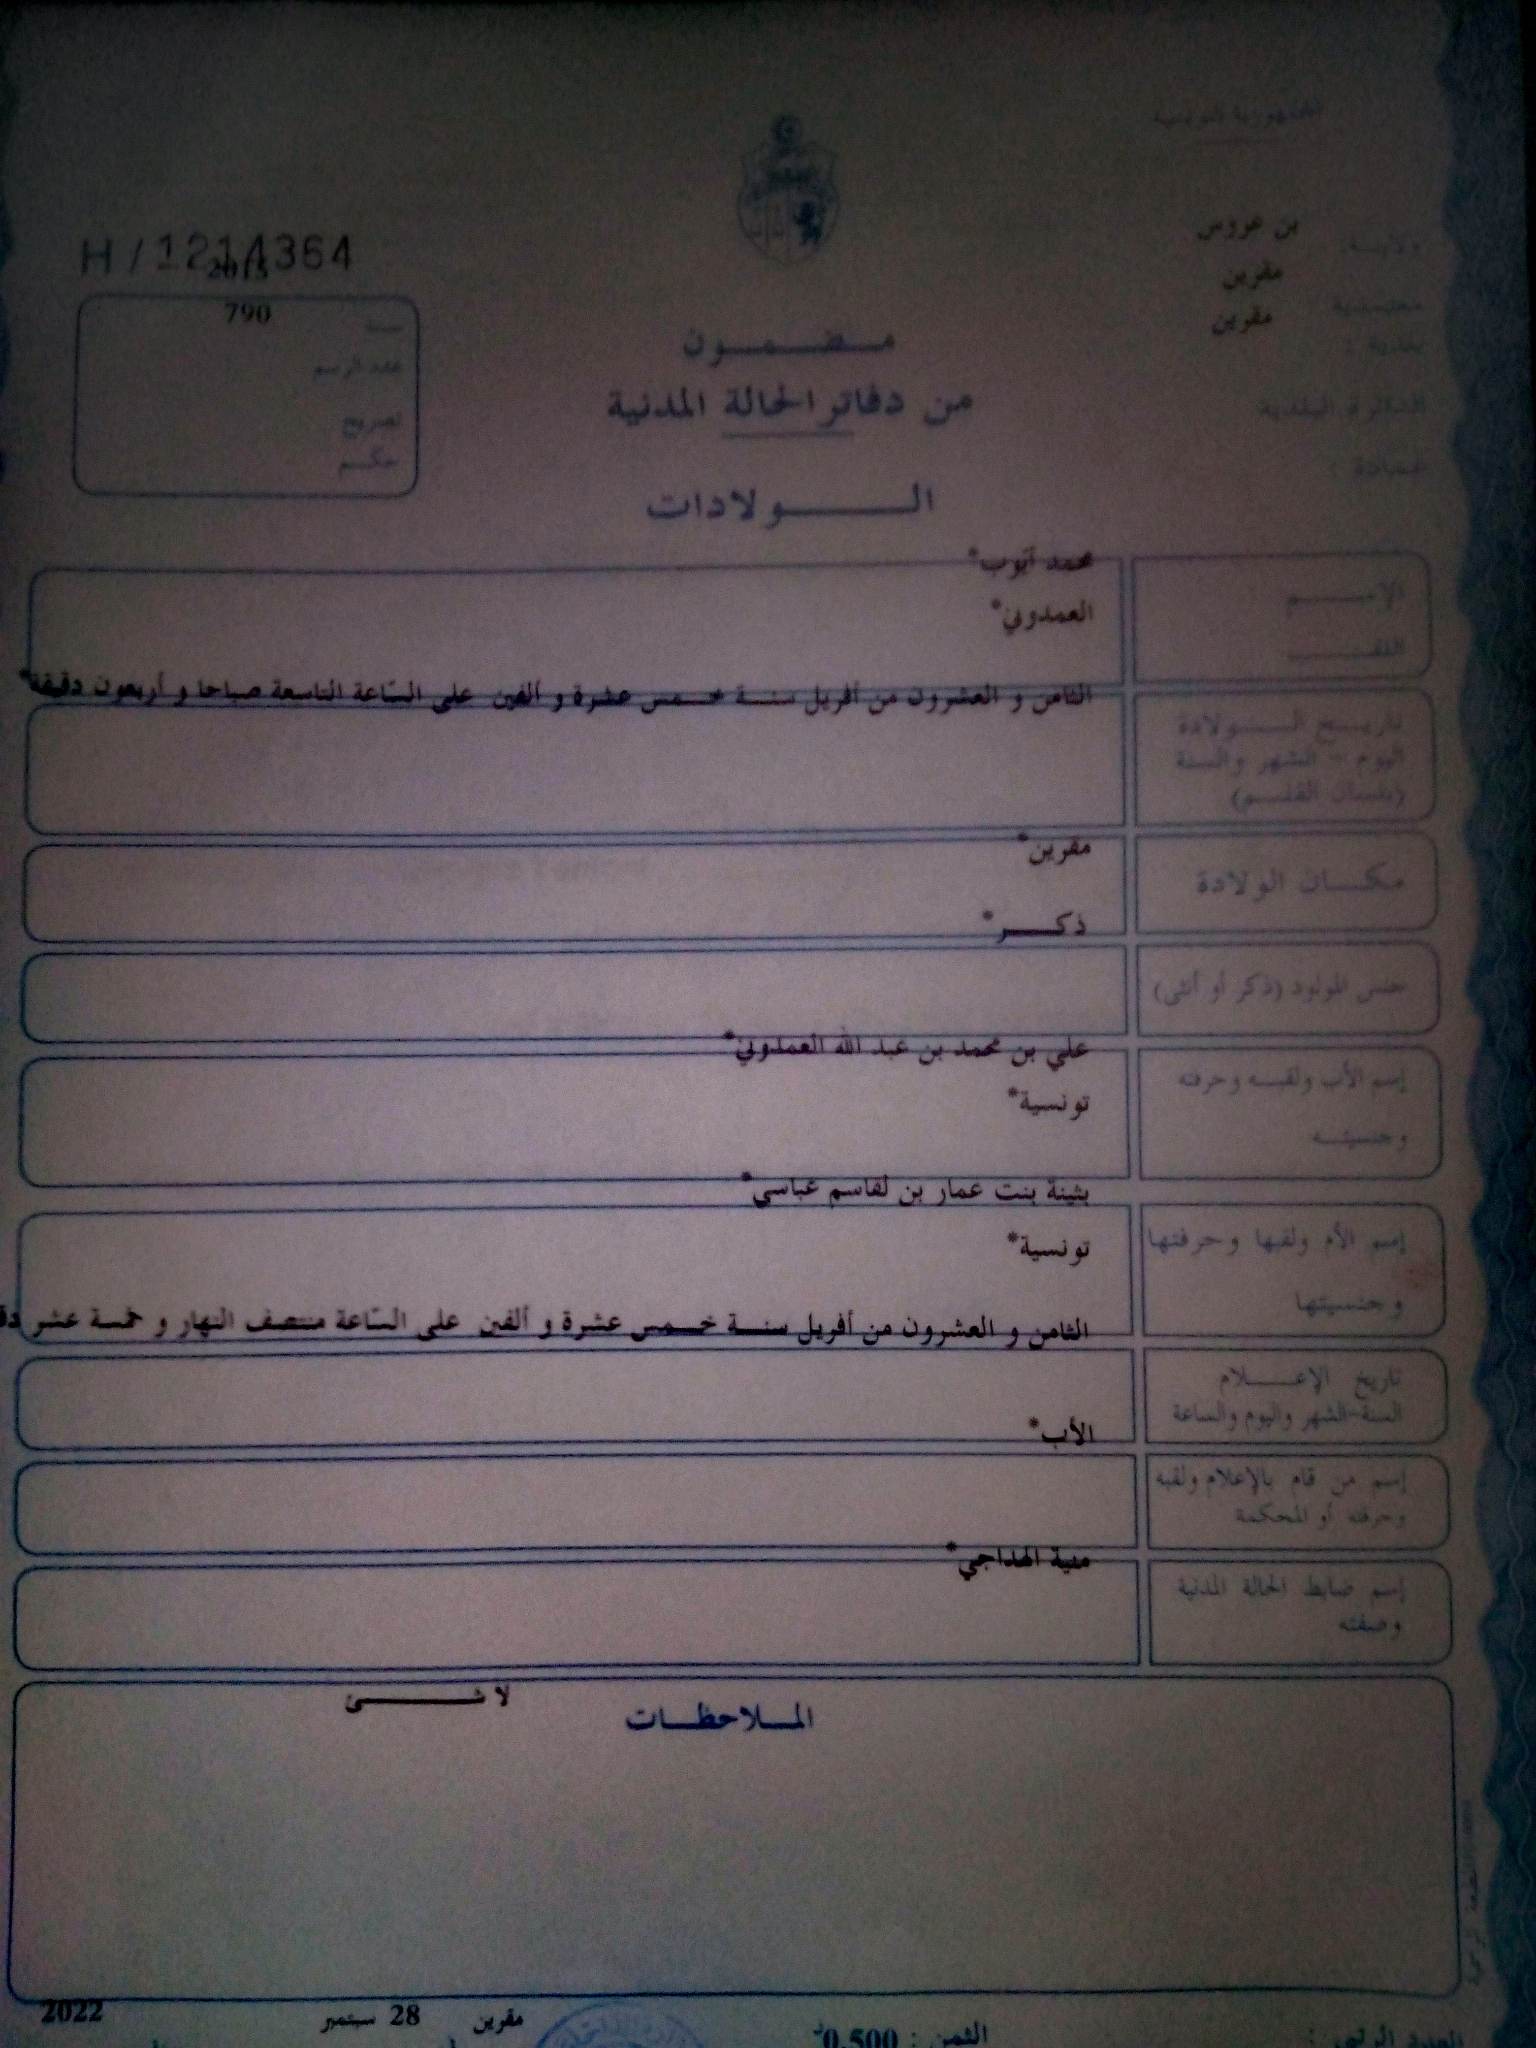 الجمهورية التونسية
ولاية بن عروس
معتمدية مقرين
بلدية : مقرين
الدائرة البلدية
عمادة :
H / 1214364
2015
790
سنة
عدد الرسم
تصريح
حكم
مضمون
من دفاتر الحالة المدنية
الولادات
الإسم
محمد أيوب*
اللقب
العمدوني*
تاريخ الولادة
اليوم - الشهر والسنة
(بلسان القلم)
الثامن و العشرون من أفريل سنة خمس عشرة و ألفين على السّاعة التاسعة صباحا و أربعون دقيقة*
مكان الولادة
مقرين*
جنس المولود (ذكر أو أنثى)
ذكر*
إسم الأب ولقبه وحرفته
وجنسيته
علي بن محمد بن عبد الله العمدوني*
تونسية*
إسم الأم ولقبها وحرفتها
وجنسيتها
بثينة بنت عمار بن لقاسم عباسي*
تونسية*
تاريخ الإعلام
السنة-الشهر واليوم والساعة
الثامن و العشرون من أفريل سنة خمس عشرة و ألفين على السّاعة منتصف النهار و خمسة عشر دق
إسم من قام بالإعلام ولقبه
وحرفته أو المحكمة
الأب*
إسم ضابط الحالة المدنية
وصفته
منية الهداجي*
الملاحظات
لا شئ
مقرين 28 سبتمبر 2022
الثمن : 0,500 د